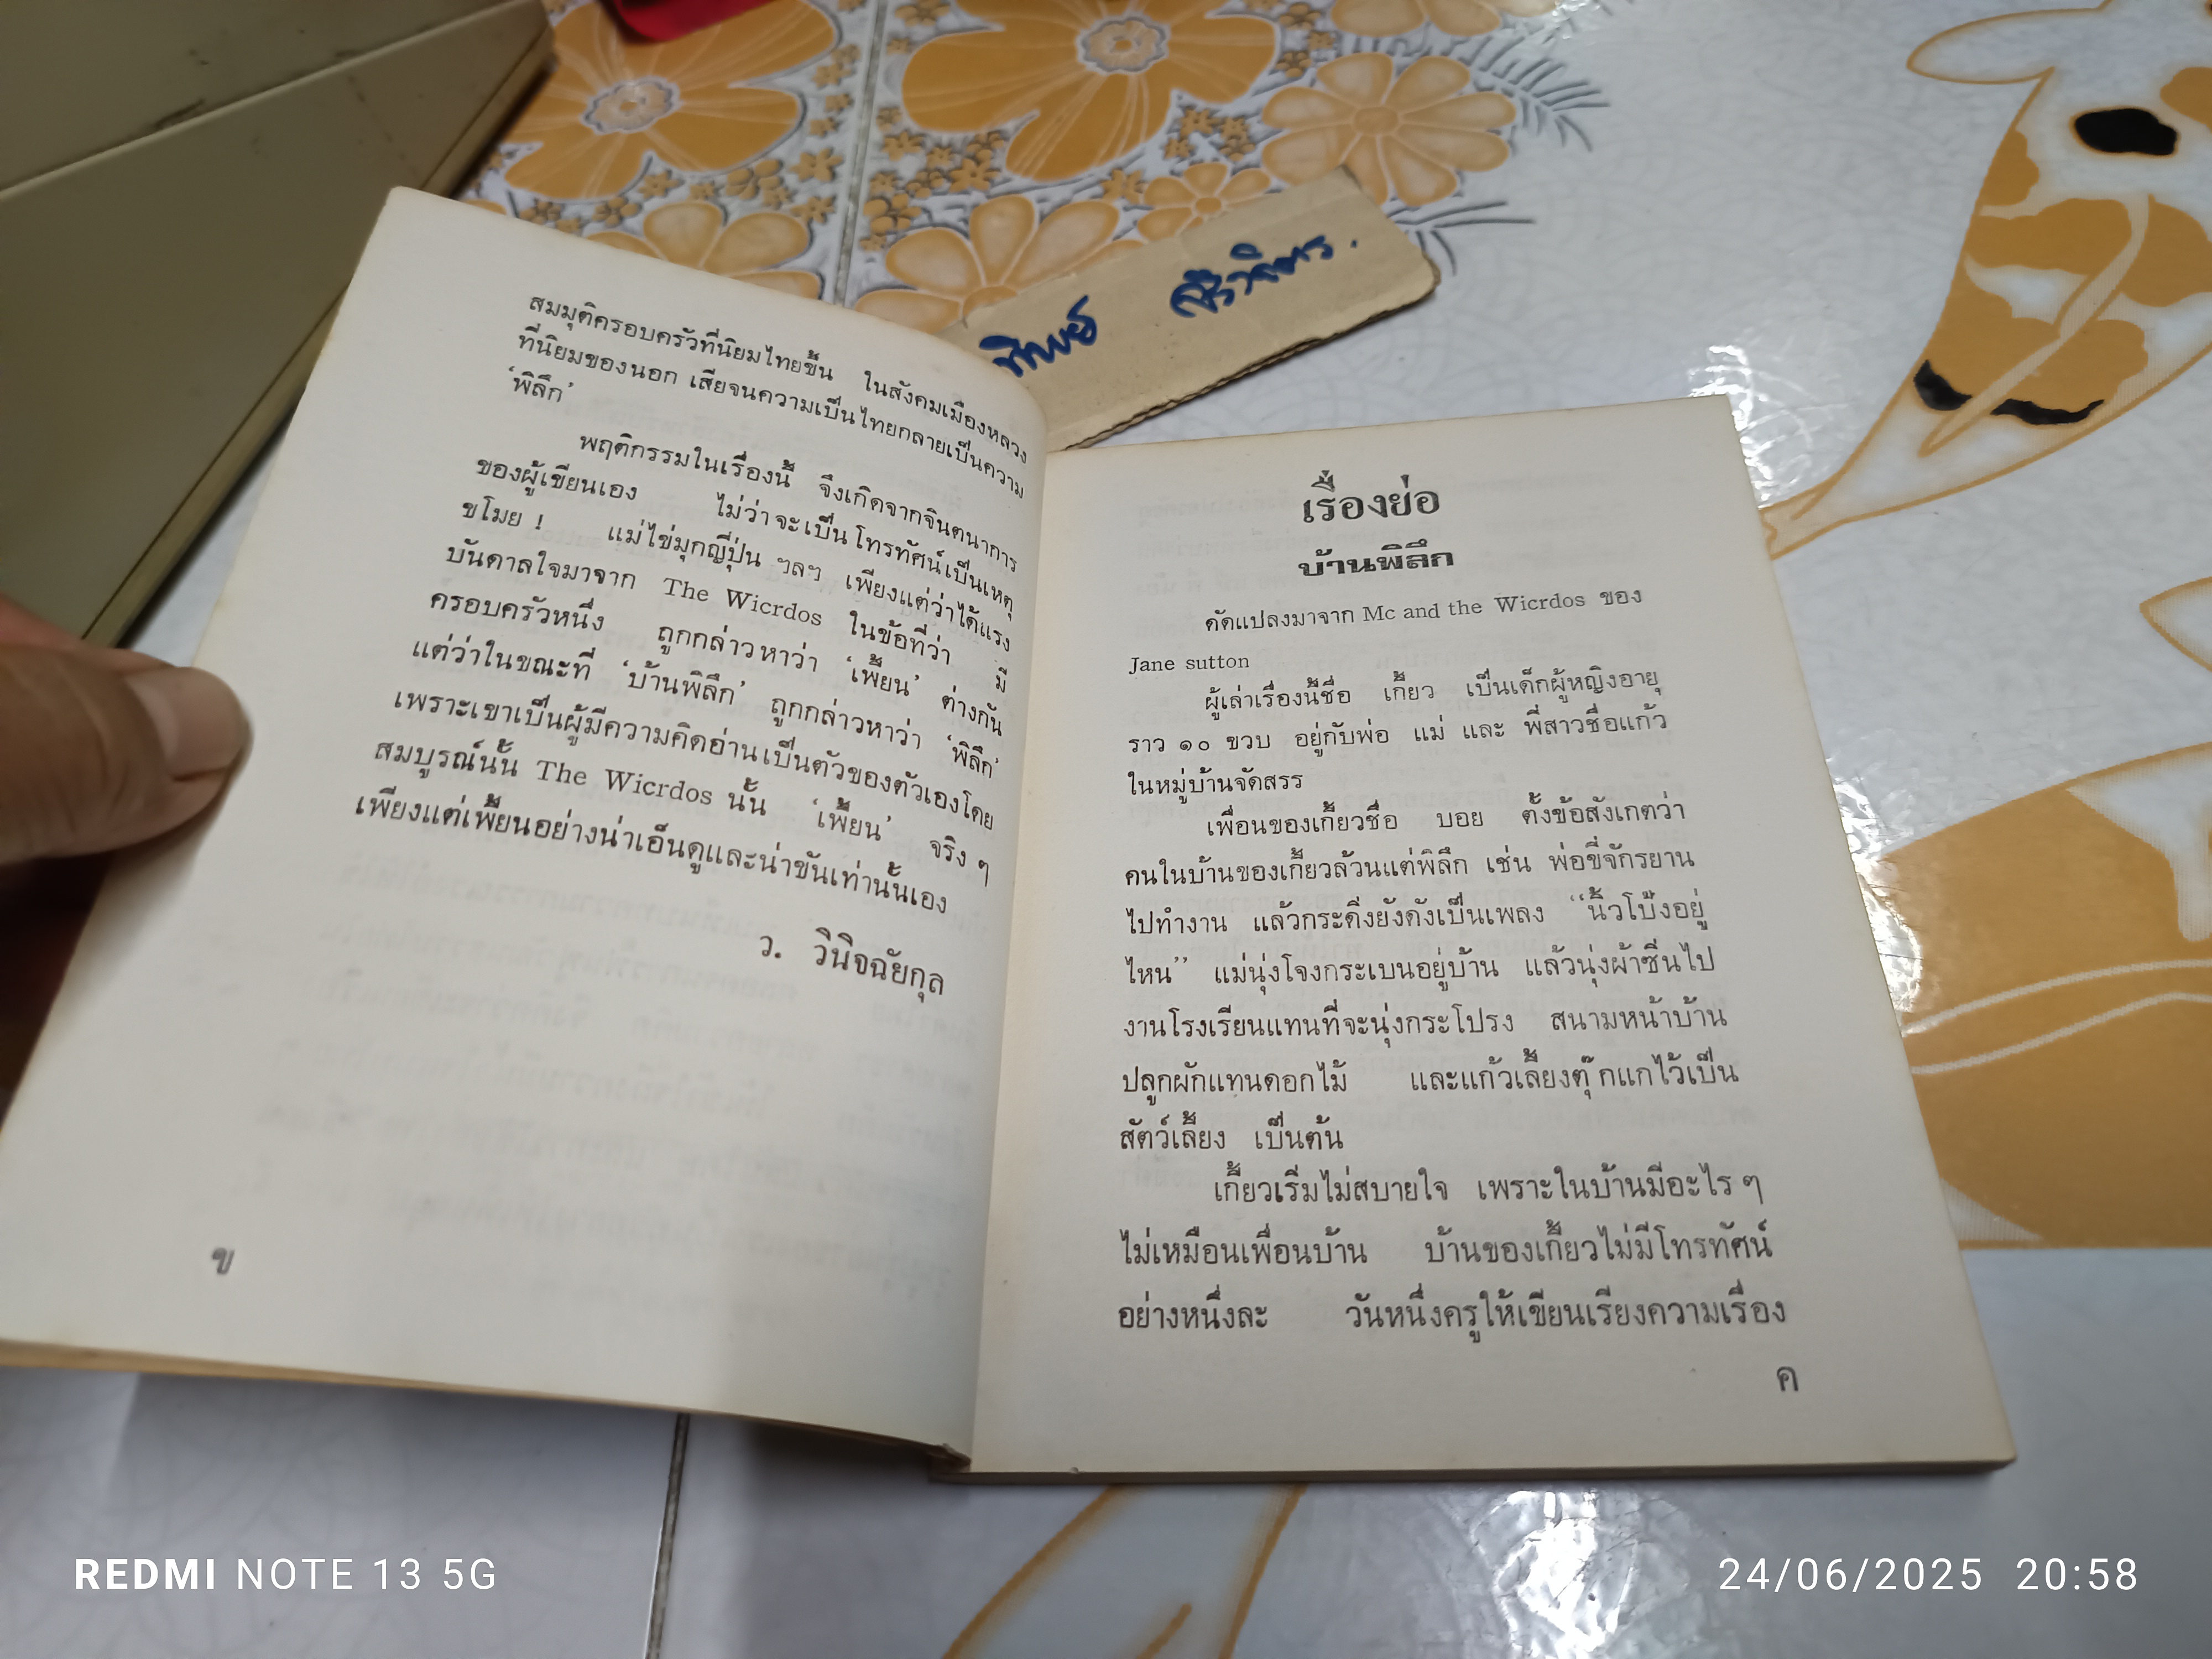 สมมุติครอบครัวที่นิยมไทยขึ้น ในสังคมเมืองหลวง
ที่นิยมของนอก เสียจนความเป็นไทยกลายเป็นความ
‘พิลึก’
พฤติกรรมในเรื่องนี้ จึงเกิดจากจินตนาการ
ของผู้เขียนเอง ไม่ว่าจะเป็นโทรทัศน์เป็นเหตุ
ขโมย ! แม่ไข่มุกญี่ปุ่น ฯลฯ เพียงแต่ว่าได้แรง
บันดาลใจมาจาก The Wicrdos ในข้อที่ว่า มี
ครอบครัวหนึ่ง ถูกกล่าวหาว่า ‘เพี้ยน’ ต่างกัน
แต่ว่าในขณะที่ ‘บ้านพิลึก’ ถูกกล่าวหาว่า ‘พิลึก’
เพราะเขาเป็นผู้มีความคิดอ่านเป็นตัวของตัวเองโดย
สมบูรณ์นั้น The Wicrdos นั้น ‘เพี้ยน’ จริง ๆ
เพียงแต่เพี้ยนอย่างน่าเอ็นดูและน่าขันเท่านั้นเอง
ว. วินิจฉัยกุล
ข
เรื่องย่อ
บ้านพิลึก
ดัดแปลงมาจาก Mc and the Wicrdos ของ
Jane sutton
ผู้เล่าเรื่องนี้ชื่อ เกี้ยว เป็นเด็กผู้หญิงอายุ
ราว ๑๐ ขวบ อยู่กับพ่อ แม่ และ พี่สาวชื่อแก้ว
ในหมู่บ้านจัดสรร
เพื่อนของเกี้ยวชื่อ บอย ตั้งข้อสังเกตว่า
คนในบ้านของเกี้ยวล้วนแต่พิลึก เช่น พ่อขี่จักรยาน
ไปทำงาน แล้วกระดิ่งยังดังเป็นเพลง “นิ้วโป้งอยู่
ไหน” แม่นุ่งโจงกระเบนอยู่บ้าน แล้วนุ่งผ้าซิ่นไป
งานโรงเรียนแทนที่จะนุ่งกระโปรง สนามหน้าบ้าน
ปลูกผักแทนดอกไม้ และแก้วเลี้ยงตุ๊กแกไว้เป็น
สัตว์เลี้ยง เป็นต้น
เกี้ยวเริ่มไม่สบายใจ เพราะในบ้านมีอะไร ๆ
ไม่เหมือนเพื่อนบ้าน บ้านของเกี้ยวไม่มีโทรทัศน์
อย่างหนึ่งละ วันหนึ่งครูให้เขียนเรียงความเรื่อง
ค
REDMI NOTE 13 5G
24/06/2025 20:58